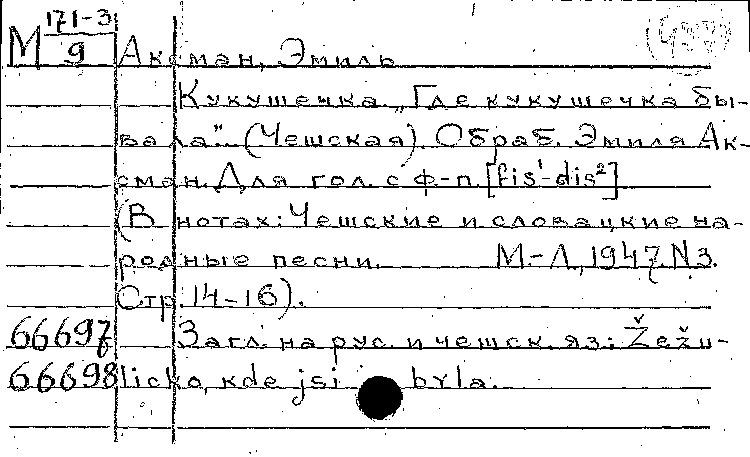 М 171-3/9 Аксман, Эмиль
Кукушечка „Где кукушечка бы-
вала". (Чешская). Обраб. Эмиля Ак-
сман. Для гол. с ф-п. [fis¹-dis²]
(В нотах: Чешские и словацкие на-
родные песни. М-Л, 1947. N3.
Стр. 14-16).
66697 Загл. на рус. и чешск. яз: Žežu-
66698 licko, kde jsi byla.